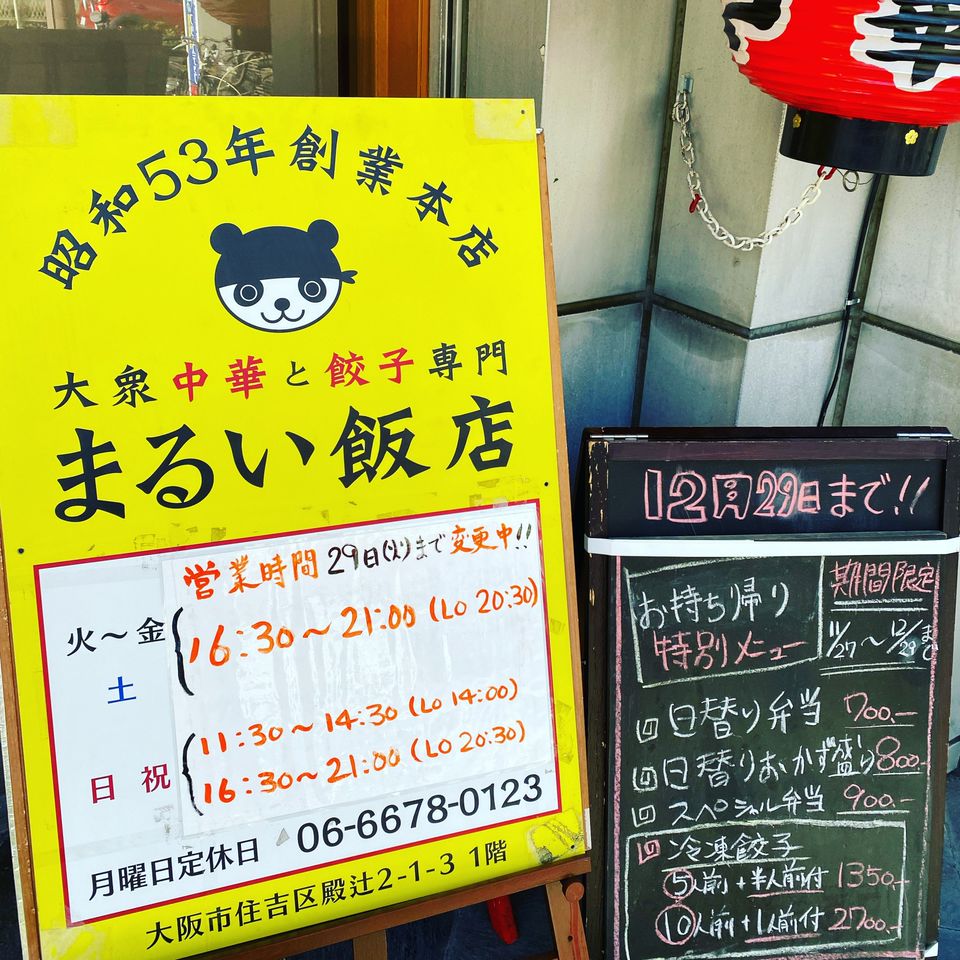 昭和53年創業本店
大衆中華と餃子専門
まるい飯店
営業時間 29日(火)まで変更中!!
火～金 16:30～21:00 (Lo 20:30)
土
11:30～14:30 (Lo 14:00)
日 祝 16:30～21:00 (Lo 20:30)
月曜日定休日 06-6678-0123
大阪市住吉区殿辻2-1-3 1階
12月29日まで!!
お持ち帰り
特別メニュー
期間限定
11/27～12/29まで
日替り弁当 700.-
日替りおかず盛り 800.-
スペシャル弁当 900.-
冷凍餃子
5人前+半人前付 1350.-
10人前+1人前付 2700.-